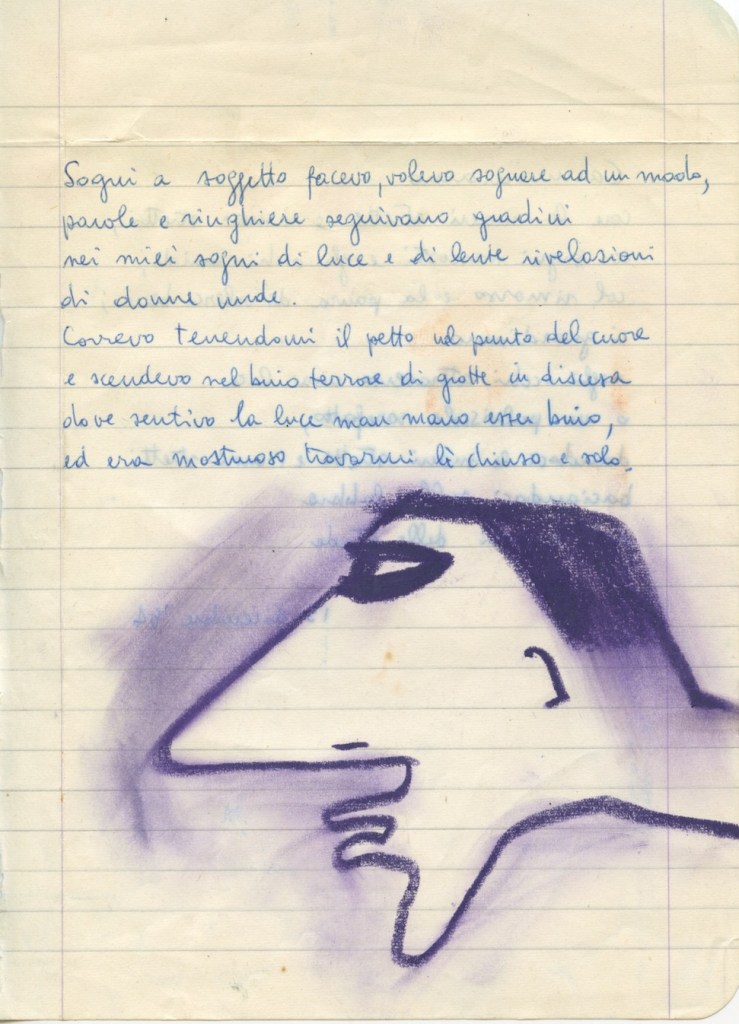 Sogni a soggetto facevo, volevo sognare ad un modo,
parole e ringhiere seguivano gradini
nei miei sogni di luce e di lente rivelazioni
di donne nude.
Correvo tenendomi il petto nel punto del cuore
e scendevo nel buio terrore di grotte in discesa
dove sentivo la luce man mano esser buio,
ed era mostruoso trovarmi lì chiuso e solo.